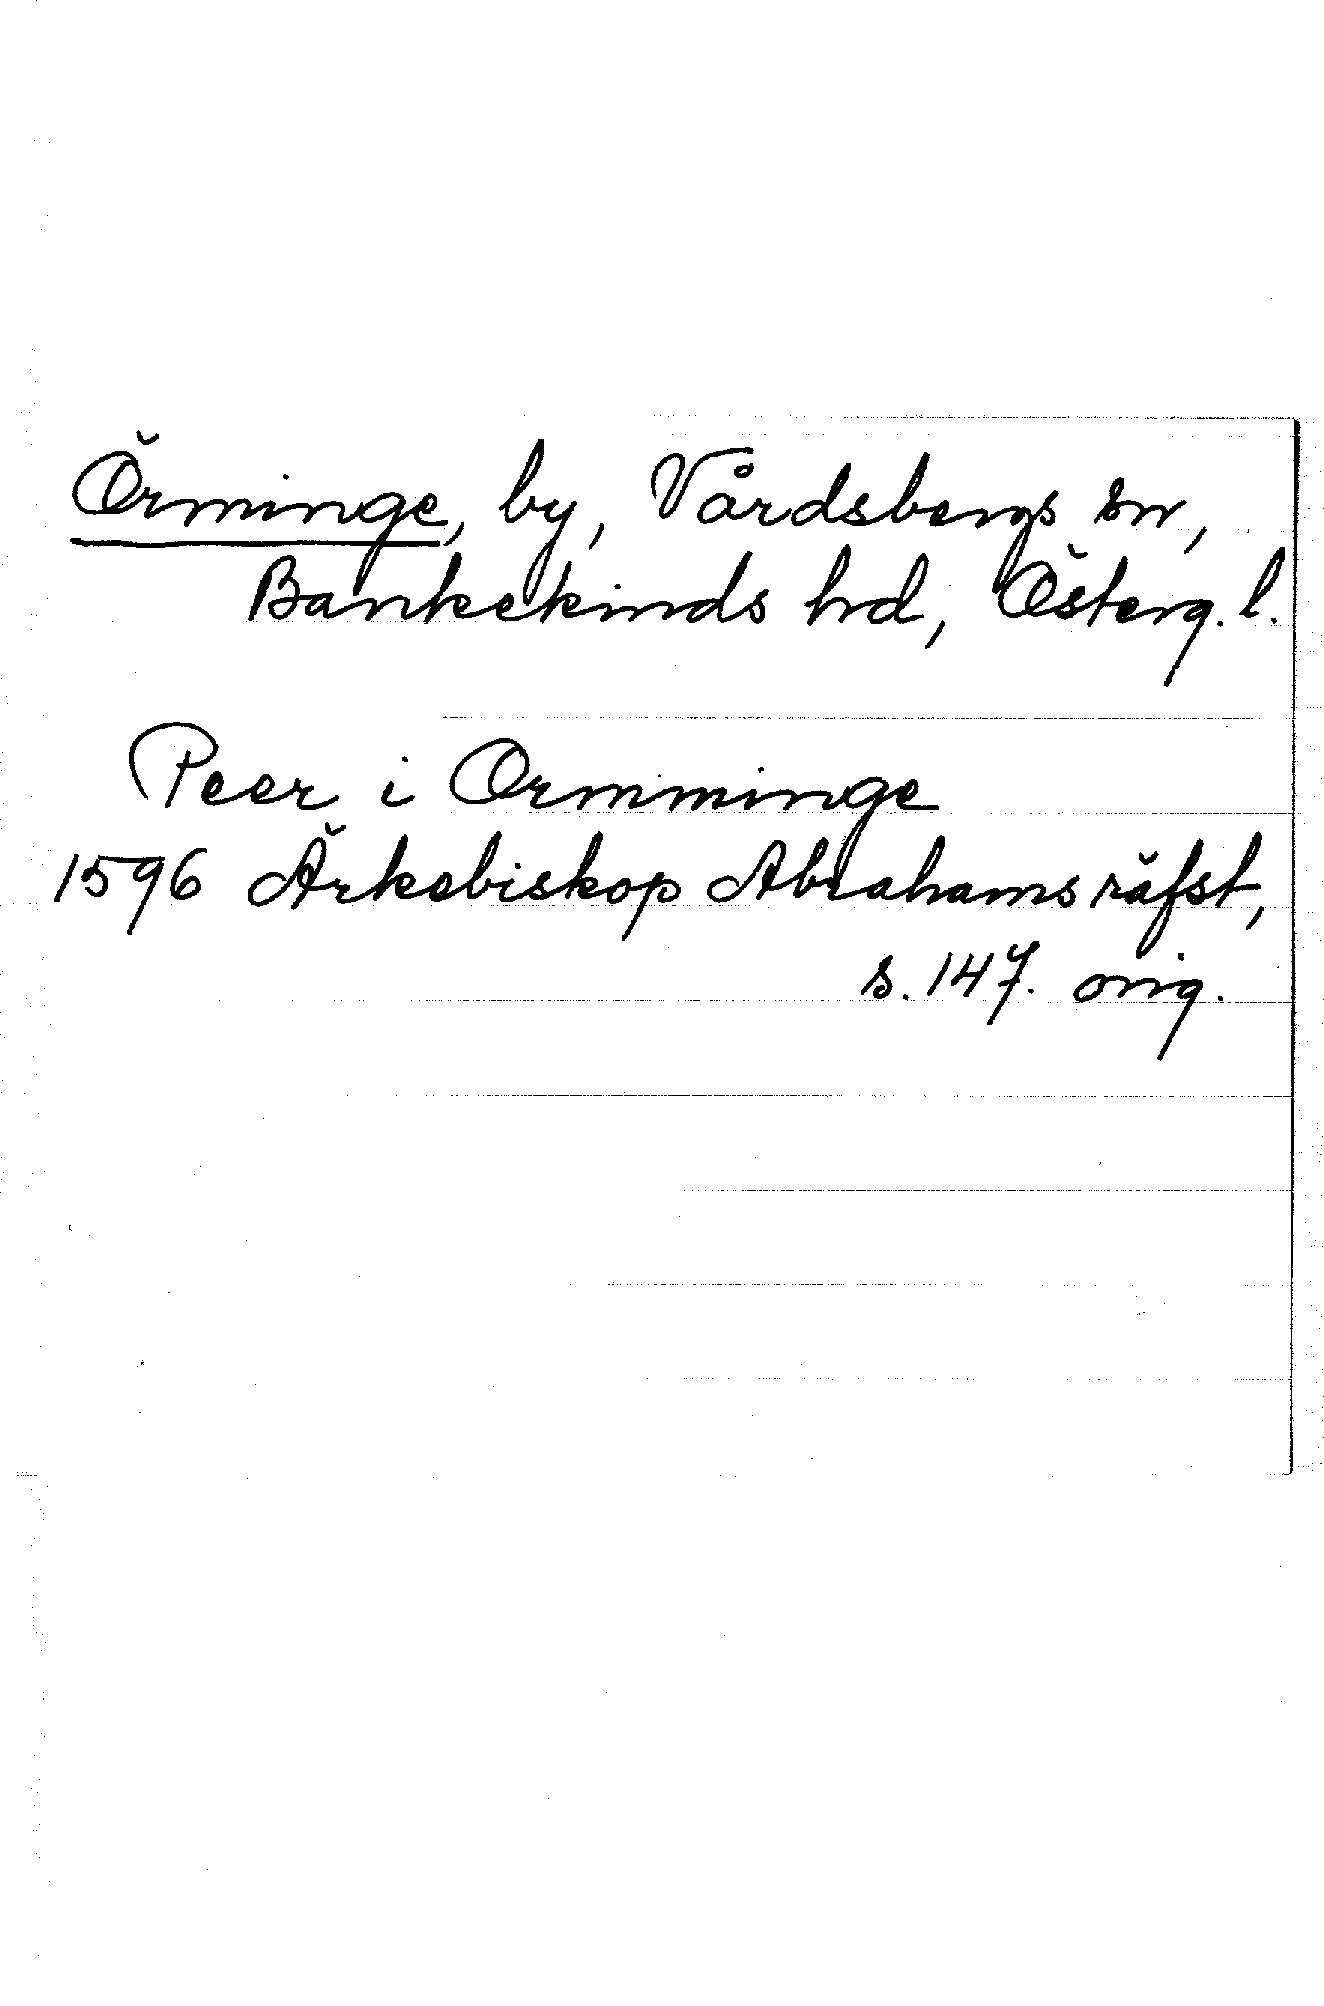 Örminge, by, Vårdsbergs sn,
Bankekinds hd, Österg. l.
Peer i Ormminge
1596 Ärkebiskop Abrahams räfst,
s. 147. orig.